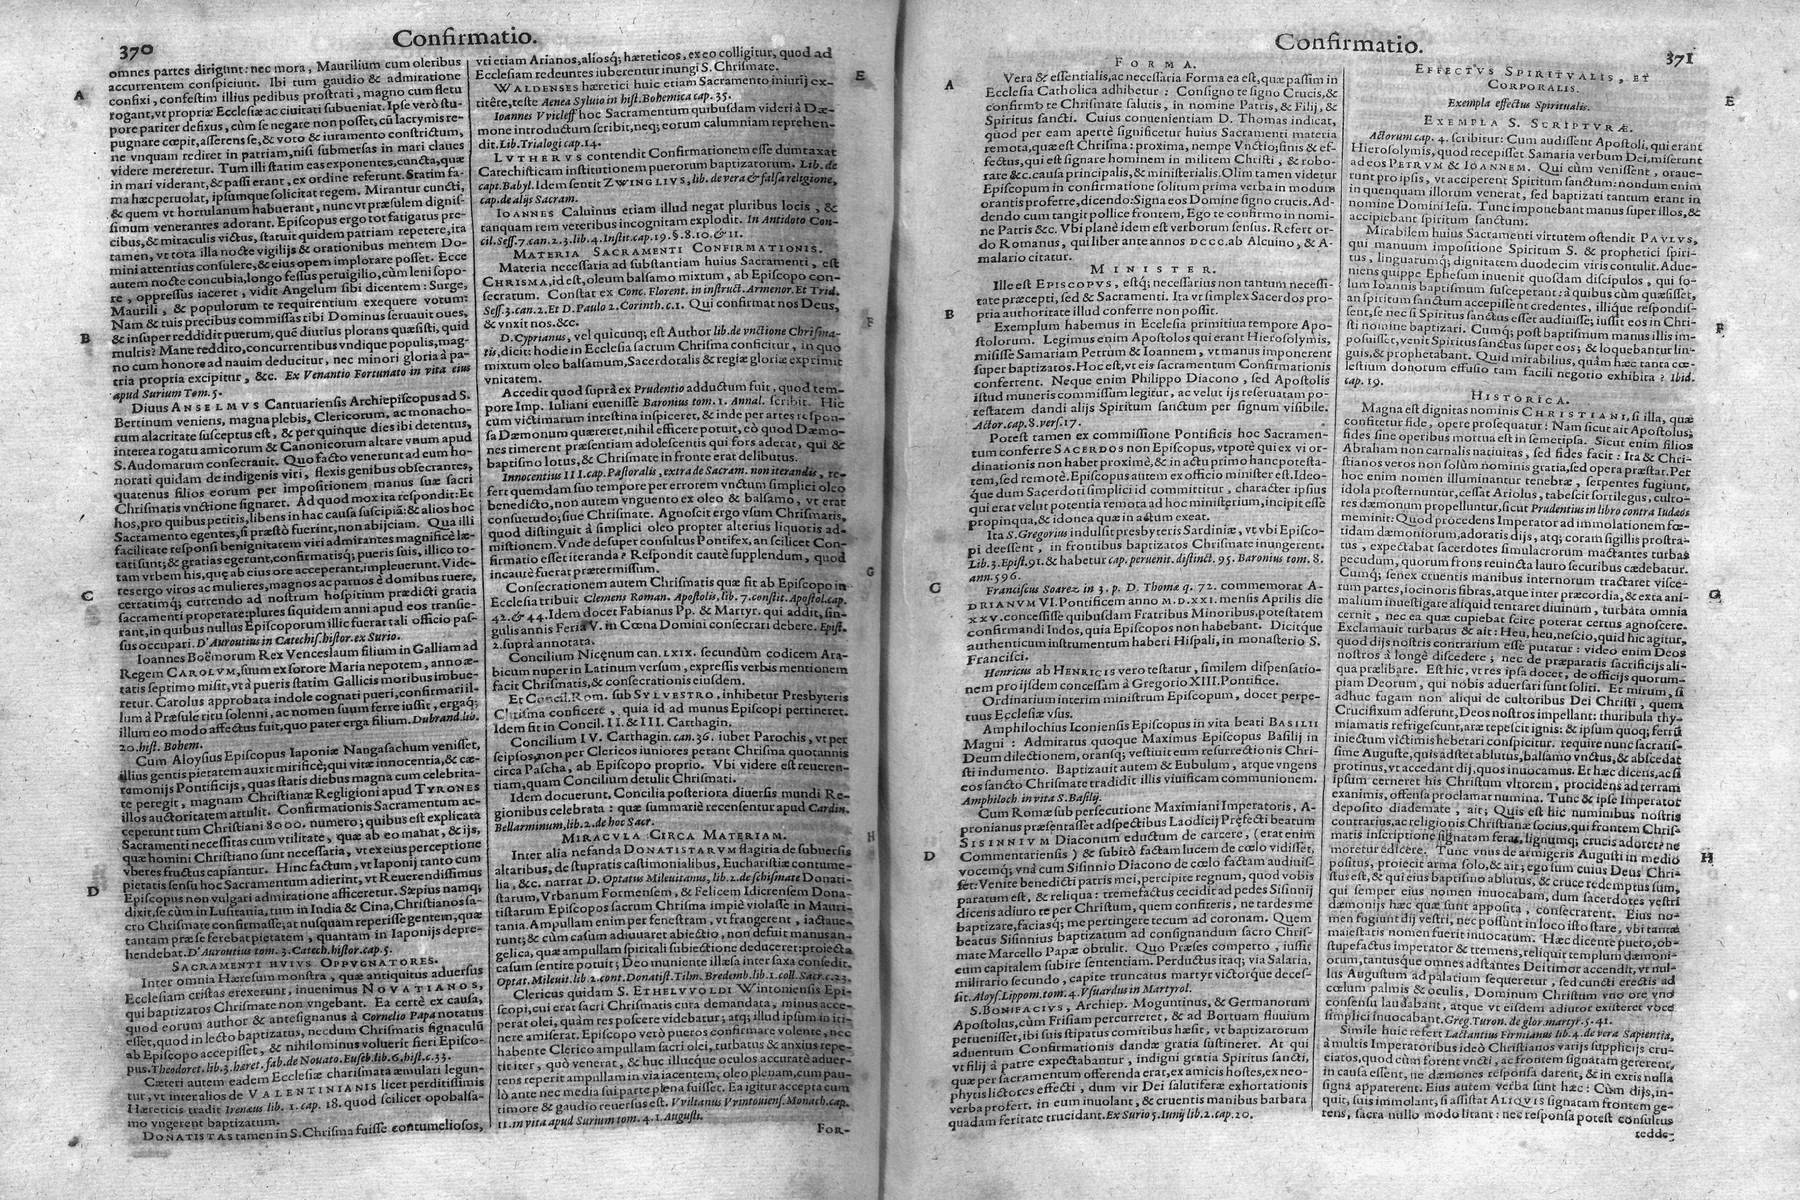 370
Confirmatio.
omnes partes dirigunt: nec mora, Maurilium cum oleribus
accurrentem conspiciunt. Ibi tum gaudio & admiratione
confixi, confestim illius pedibus prostrati, magno cum fletu
rogant, vt propriæ Ecclesiæ ac ciuitati subueniat. Ipse verò stu-
pore pariter defixus, cùm se negare non posset, cū lacrymis re-
pugnare cœpit, asserens se, & voto & iuramento constrictum,
ne vnquam rediret in patriam, nisi submersas in mari claues
videre mereretur. Tum illi statim eas exponentes, cuncta, quæ
in mari viderant, & passi erant, ex ordine referunt. Statim fa-
ma hæc peruolat, ipsumque solicitat regem. Mirantur cuncti,
& quem vt hortulanum habuerant, nunc vt præsulem dignis-
simum venerantes adorant. Episcopus ergo tot fatigatus pre-
cibus, & miraculis victus, statuit quidem patriam repetere, ita
tamen, vt tota illa nocte vigilijs & orationibus mentem Do-
mini attentius consulere, & eius opem implorare posset. Ecce
autem nocte concubia, longo fessus peruigilio, cùm leni sopo-
re, oppressus iaceret, vidit Angelum sibi dicentem: Surge,
Maurili, & populorum te requirentium exequere votum:
Nam & tuis precibus commissas tibi Dominus seruauit oues,
& insuper reddidit puerum, quē diutius plorans quæsisti, quid
multis? Mane reddito, concurrentibus vndique populis, mag-
no cum honore ad nauim deducitur, nec minori gloria à pa-
tria propria excipitur, &c. Ex Venantio Fortunato in vita eius
apud Surium Tom. 5.
Diuus ANSELMVS Cantuariensis Archiepiscopus ad S.
Bertinum veniens, magna plebis, Clericorum, ac monacho-
rum alacritate susceptus est, & per quinque dies ibi detentus,
interea rogatu amicorum & Canonicorum altare vnum apud
S. Audomarum consecrauit. Quo facto venerunt ad eum ho-
norati quidam de indigenis viri, flexis genibus obsecrantes,
quatenus filios eorum per impositionem manus suæ sacri
Chrismatis vnctione signaret. Ad quod mox ita respondit: Et
hos, pro quibus petitis, libens in hac causa suscipiā: & alios hoc
Sacramento egentes, si præstò fuerint, non abijciam. Qua illi
facilitate responsi benignitatem viri admirantes magnificè læ-
tati sunt; & gratias egerunt, confirmatisq; pueris suis, illico to-
tam vrbem his, quę ab eius ore acceperant, impleuerunt. Vide-
res ergo viros ac mulieres, magnos ac paruos è domibus ruere,
certatimq; currendo ad nostrum hospitium prædicti gratia
sacramenti properate: plures siquidem anni apud eos transie-
rant, in quibus nullus Episcoporum illic fuerat tali officio pas-
sus occupari. D'Auroutius in Catechis. histor. ex Surio.
Ioannes Boëmorum Rex Venceslaum filium in Galliam ad
Regem CAROLVM, suum ex sorore Maria nepotem, anno æ-
tatis septimo misit, vt à pueris statim Gallicis moribus imbue-
retur. Carolus approbata indole cognati pueri, confirmari il-
lum à Præsule ritu solenni, ac nomen suum ferre iussit, ergaq;
illum eo modo affectus fuit, quo pater erga filium. Dubrand. lib.
20. hist. Bohem.
Cum Aloysius Episcopus Iaponiæ Nangasachum venisset,
illius gentis pietatem auxit mirificè; qui vitæ innocentia, & cæ-
ramonijs Pontificijs, quas statis diebus magna cum celebrita-
te peregit, magnam Christianæ Regligioni apud TYRONES
illos auctoritatem attulit. Confirmationis Sacramentum ac-
ceperunt tum Christiani 8000. numero; quibus est explicata
Sacramenti necessitas cum vtilitate, quæ ab eo manat, & ijs,
quæ homini Christiano sunt necessaria, vt ex eius perceptione
vberes fructus capiantur. Hinc factum, vt Iaponij tanto cum
pietatis sensu hoc Sacramentum adierint, vt Reuerendissimus
Episcopus non vulgari admiratione afficeretur. Sæpius namq;
dixit, se cùm in Lusitania, tum in India & Cina, Christianos sa-
cro Chrismate confirmasse; at nusquam reperisse gentem, quæ
tantam præ se ferebat pietatem, quantam in Iaponijs depre-
hendebat. D'Auroutius tom. 3. Catech. histor. cap. 5.
SACRAMENTI HVIVS OPPVGNATORES.
Inter omnia Hæresum monstra, quæ antiquitus aduersus
Ecclesiam cristas erexerunt, inuenimus NOVATIANOS,
qui baptizatos Chrismate non vngebant. Ea certè ex causa,
quod eorum author & antesignanus à Cornelio Papa notatus
esset, quod in lecto baptizatus, necdum Chrismatis signaculū
ab Episcopo accepisset, & nihilominus voluerit fieri Episco-
pus. Theodoret. lib. 3. hæret. fab. de Nouato. Euseb. lib. 6. hist. c. 33.
Cæteri autem eadem Ecclesiæ charismata æmulati legun-
tur, vt inter alios de VALENTINIANIS licet perditissimis
Hæreticis tradit Irenæus lib. 1. cap. 18. quod scilicet opobalsa-
mo vngerent baptizatum.
DONATISTAS tamen in S. Chrisma fuisse contumeliosos,
vti etiam Arianos, aliosq; hæreticos, ex eo colligitur, quod ad
Ecclesiam redeuntes iuberentur inungi S. Chrismate.
WALDENSES hæretici huic etiam Sacramento iniurij ex-
titêre, teste Aenea Syluio in hist. Bohemica cap. 35.
Ioannes Vvicleff hoc Sacramentum quibusdam videri à Dæ-
mone introductum scribit, neq; eorum calumniam reprehen-
dit. Lib. Trialogi cap. 14.
LVTHERVS contendit Confirmationem esse dumtaxat
Catechisticam institutionem puerorum baptizatorum. Lib. de
capt. Babyl. Idem sentit ZWINGLIVS, lib. de vera & falsa religione,
cap. de alijs Sacram.
IOANNES Caluinus etiam illud negat pluribus locis, &
tanquam rem veteribus incognitam explodit. In Antidoto Con-
cil. Sess. 7. can. 2. 3. lib. 4. Instit. cap. 19. §. 8. 10. & 11.
MATERIA SACRAMENTI CONFIRMATIONIS.
Materia necessaria ad substantiam huius Sacramenti, est
CHRISMA, id est, oleum balsamo mixtum, ab Episcopo con-
secratum. Constat ex Conc. Florent. in instruct. Armenor. Et Trid.
Sess. 3. can. 2. Et D. Paulo 2. Corinth. c. 1. Qui confirmat nos Deus,
& vnxit nos. &c.
D. Cyprianus, vel quicunq; est Author lib. de vnctione Chrisma-
tis, dicit: hodie in Ecclesia sactum Chrisma conficitur, in quo
mixtum oleo balsamum, Sacerdotalis & regiæ gloriæ exprimit
vnitatem.
Accedit quod suprà ex Prudentio adductum fuit, quod tem-
pore Imp. Iuliani euenisse Baronius tom. 1. Annal. scribit. Hic
cum victimarum intestina inspiceret, & inde per artes respon-
sa Dæmonum quæreret, nihil efficere potuit, eò quod Dæmo-
nes timerent præsentiam adolescentis qui fors aderat, qui &
baptismo lotus, & Chrismate in fronte erat delibutus.
Innocentius III. cap. Pastoralis, extra de Sacram. non iterandis, re-
fert quemdam suo tempore per errorem vnctum simplici oleo
benedicto, non autem vnguento ex oleo & balsamo, vt erat
consuetudo; siue Chrismate. Agnoscit ergo vsum Chrismatis,
quod distinguit à simplici oleo propter alterius liquoris ad-
mistionem. Vnde desuper consultus Pontifex, an scilicet Con-
firmatio esset iteranda? Respondit cautè supplendum, quod
incautè fuerat prætermissum.
Consecrationem autem Chrismatis quæ fit ab Episcopo in
Ecclesia tribuit Clemens Roman. Apostolis, lib. 7. constit. Apostol. cap.
42. & 44. Idem docet Fabianus Pp. & Martyr. qui addit, sin-
gulis annis Feria V. in Cœna Domini consecrari debere. Epist.
2. suprà annotata.
Concilium Nicęnum can. LXIX. secundùm codicem Ara-
bicum nuper in Latinum versum, expressis verbis mentionem
facit Chrismatis, & consecrationis eiusdem.
Et Concil. Rom. sub SYLVESTRO, inhibetur Presbyteris
Chrisma conficere, quia id ad munus Episcopi pertineret.
Idem fit in Concil. II. & III. Carthagin.
Concilium IV. Carthagin. can. 36. iubet Parochis, vt per
seipsos, non per Clericos iuniores petant Chrisma quotannis
circa Pascha, ab Episcopo proprio. Vbi videre est reueren-
tiam, quam Concilium detulit Chrismati.
Idem docuerunt Concilia posteriora diuersis mundi Re-
gionibus celebrata: quæ summariè recensentur apud Cardin.
Bellarminum, lib. 2. de hoc Sacr.
MIRACVLA CIRCA MATERIAM.
Inter alia nefanda DONATISTARVM flagitia de subuersis
altaribus, de stupratis castimonialibus, Eucharistiæ contume-
lia, &c. narrat D. Optatus Mileuitanus, lib. 2. de schismate Donati-
starum, Vrbanum Formensem, & Felicem Idicrensem Dona-
tistarum Episcopos sacrum Chrisma impiè violasse in Mauri-
tana. Ampullam enim per fenestram, vt frangerent, iactaue-
runt; & cùm casum adiuuaret abiectio, non defuit manus an-
gelica, quæ ampullam spiritali subiectione deduceret: proiecta
casum sentire potuit; Deo muniente illæsa inter saxa consedit.
Optat. Mileuit. lib. 2. cont. Donatist. Tilm. Bredemb. lib. 1. coll. Sacr. c. 23.
Clericus quidam S. ETHELVVOLDI Wintoniensis Epi-
scopi, cui erat sacri Chrismatis cura demandata, minus acce-
perat olei, quàm res poscere videbatur; atq; illud ipsum in iti-
nere amiserat. Episcopo verò pueros confirmare volente, nec
habente Clerico ampullam sacri olei, turbatus & anxius repe-
tit iter, quò venerat, & huc illucque oculos accuratè aduer-
tens reperit ampullam in via iacentem, oleo plenam, cum pau-
lò ante nec media sui parte plena fuisset. Ea igitur accepta cum
timore & gaudio reuersus est. Vviltanus Vvintouiens. Monach. cap.
11. in vita apud Surium tom. 4. 1. Augusti.
FOR-
A
B
C
D
E
F
G
H
Confirmatio.
371
FORMA.
Vera & essentialis, ac necessaria Forma ea est, quæ passim in
Ecclesia Catholica adhibetur: Consigno te signo Crucis, &
confirmo te Chrismate salutis, in nomine Patris, & Filij, &
Spiritus sancti. Cuius conuenientiam D. Thomas indicat,
quod per eam apertè significetur huius Sacramenti materia
remota, quæ est Chrisma: proxima, nempe Vnctio; finis & ef-
fectus, qui est signare hominem in militem Christi, & robo-
rare &c. causa principalis, & ministerialis. Olim tamen videtur
Episcopum in confirmatione solitum prima verba in modum
orantis profetre, dicendo: Signa eos Domine signo crucis. Ad-
dendo cum tangit pollice frontem, Ego te confirmo in nomi-
ne Patris &c. Vbi planè idem est verborum sensus. Refert or-
do Romanus, qui liber ante annos DCCC. ab Alcuino, & A-
malario citatur.
MINISTER.
Ille est EPISCOPVS, estq; necessarius non tantum necessi-
tate præcepti, sed & Sacramenti. Ita vt simplex Sacerdos pro-
pria authoritate illud conferre non possit.
Exemplum habemus in Ecclesia primitiua tempore Apo-
stolorum. Legimus enim Apostolos qui erant Hierosolymis,
misisse Samariam Petrum & Ioannem, vt manus imponerent
super baptizatos. Hoc est, vt eis sacramentum Confirmationis
conferrent. Neque enim Philippo Diacono, sed Apostolis
istud muneris commissum legitur, ac velut ijs reseruatam po-
testatem dandi alijs Spiritum sanctum per signum visibile.
Actor. cap. 8. vers. 17.
Potest tamen ex commissione Pontificis hoc Sacramen-
tum conferre SACERDOS non Episcopus, vtpotè qui ex vi or-
dinationis non habet proximè, & in actu primo hanc potesta-
tem, sed remotè. Episcopus autem ex officio minister est. Ideo-
que dum Sacerdoti simplici id committitur, character ipsius
qui erat velut potentia remota ad hoc ministerium, incipit esse
propinqua, & idonea quæ in actum exeat.
Ita S. Gregorius indulsit presbyteris Sardiniæ, vt vbi Episco-
pi deessent, in frontibus baptizatos Chrismate inungerent.
Lib. 3. Epist. 91. & habetur cap. peruenit. distinct. 95. Baronius tom. 8.
ann. 596.
Franciscus Soarez in 3. p. D. Thomæ q. 72. commemorat A-
DRIANVM VI. Pontificem anno M.D.XXI. mensis Aprilis die
XXV. concessisse quibusdam Fratribus Minoribus, potestatem
confirmandi Indos, quia Episcopos non habebant. Dicitque
authenticum instrumentum haberi Hispali, in monasterio S.
Francisci.
Henricus ab HENRICIS vero testatur, similem dispensatio-
nem pro ijsdem concessam à Gregorio XIII. Pontifice.
Ordinarium interim ministrum Episcopum, docet perpe-
tuus Ecclesiæ vsus.
Amphilochius Iconiensis Episcopus in vita beati BASILII
Magni: Admiratus quoque Maximus Episcopus Basilij in
Deum dilectionem, oransq; vestiuit eum resurrectionis Chri-
sti indumento. Baptizauit autem & Eubulum, atque vngens
eos sancto Chrismate tradidit illis viuificam communionem.
Amphiloch in vita S. Basilij.
Cum Romæ sub persecutione Maximiani Imperatoris, A-
pronianus præsentasset adspectibus Laodicij Præfecti beatum
SISINNIVM Diaconum eductum de carcere, (erat enim
Commentariensis) & subitò factam lucem de cœlo vidisset,
vocemq; vnà cum Sisinnio Diacono de cœlo factam audiuis-
set: Venite benedicti patris mei, percipite regnum, quod vobis
paratum est, & reliqua: tremefactus cecidit ad pedes Sisinnij
dicens adiuro te per Christum, quem confiteris, ne tardes me
baptizare, faciasq; me pertingere tecum ad coronam. Quem
beatus Sisinnius baptizatum ad consignandum sacro Chris-
mate Marcello Papæ obtulit. Quo Præses comperto, iussit
eum capitalem subire sententiam. Perductus itaq; via Salaria,
militario secundo, capite truncatus martyr victorque deces-
sit. Aloys. Lippom. tom. 4. Vsuardus in Martyrol.
S. BONIFACIVS, Archiep. Moguntinus, & Germanorum
Apostolus, cùm Frisiam percurreret, & ad Bortuam fluuium
peruenisset, ibi suis stipatus comitibus hæsit, vt baptizatorum
aduentum Confirmationis dandæ gratia sustineret. At qui
vt filij à patre expectabantur, indigni gratia Spiritus sancti,
quæ per sacramentum offerenda erat, ex amicis hostes, ex neo-
phytis lictores effecti, dum vir Dei salutiferæ exhortationis
verba profert, in eum inuolant, & cruentis manibus barbara
quadam feritate trucidant. Ex Surio 5. Iunij lib. 2. cap. 20.
EFFECTVS SPIRITVALIS, ET
CORPORALIS.
Exempla effectus Spiritualis.
EXEMPLA S. SCRIPTVRÆ.
Actorum cap. 4. scribitur: Cum audissent Apostoli, qui erant
Hierosolymis, quod recepisset Samaria verbum Dei, miserunt
ad eos PETRVM & IOANNEM. Qui cùm venissent, oraue-
runt pro ipsis, vt acciperent Spiritum sanctum: nondum enim
in quenquam illorum venerat, sed baptizati tantum erant in
nomine Domini Iesu. Tunc imponebant manus super illos, &
accipiebant spiritum sanctum.
Mirabilem huius Sacramenti virtutem ostendit PAVLVS,
qui manuum impositione Spiritum S. & prophetici spiri-
tus, linguarumq; dignitatem duodecim viris contulit. Adue-
niens quippe Ephesum inuenit quosdam discipulos, qui so-
lum Ioannis baptismum susceperant: à quibus cùm quæsisset,
an spiritum sanctum accepissent credentes, illique respondis-
sent, se nec si Spiritus sanctus esset audiuisse; iussit eos in Chri-
sti nomine baptizari. Cumq; post baptismum manus illis im-
posuisset, venit Spiritus sanctus super eos; & loquebantur lin-
guis, & prophetabant. Quid mirabilius, quàm hæc tanta cœ-
lestium donorum effusio tam facili negotio exhibita? Ibid.
cap. 19.
HISTORICA.
Magna est dignitas nominis CHRISTIANI, si illa, quæ
confitetur fide, opere prosequatur: Nam sicut ait Apostolus;
fides sine operibus mortua est in semetipsa. Sicut enim filios
Abraham non carnalis natiuitas, sed fides facit: Ita & Chri-
stianos veros non solùm nominis gratia, sed opera præstat. Per
hoc enim nomen illuminantur tenebræ, serpentes fugiunt,
idola prosternuntur, cessat Ariolus, tabescit sortilegus, culto-
res dæmonum propelluntur, sicut Prudentius in libro contra Iudæos
meminit: Quod procedens Imperator ad immolationem fœ-
tidam dæmoniorum, adoratis dijs, atq; coram sigillis prostra-
tus, expectabat sacerdotes simulacrorum mactantes turbas
pecudum, quorum frons reuincta lauro securibus cædebatur.
Cumq; senex cruentis manibus internorum tractaret visce-
rum partes, iocinoris fibras, atque inter præcordia, & exta ani-
malium inuestigare aliquid tentaret diuinum, turbata omnia
cernit, nec ea quæ cupiebat scire poterat certus agnoscere.
Exclamauit turbatus & ait: Heu, heu, nescio, quid hic agitur,
quod dijs nostris contrarium esse putatur: video enim Deos
nostros à longè discedere; nec de præparatis sacrificijs ali-
qua prælibare. Est hic, vt res ipsa docet, de officijs quorum-
piam Deorum, qui nobis aduersari sunt soliti. Et mirum, si
adhuc fugam non aliqui de cultoribus Dei Christi, quem
Crucifixum adserunt, Deos nostros impellant: thuribula thy-
miamatis refrigescunt, aræ tepescit ignis: & ipsum quoq; ferrū
iniectum victimis hebetari conspicitur. require nunc sacratis-
sime Auguste, quis adstet ablutus, balsamo vnctus, & abscedat
protinus, vt accedant dij, quos inuocamus. Et hæc dicens, ac si
ipsum cerneret his Christum vltorem, procidens ad terram
exanimis, offensa proclamat numina. Tunc & ipse Imperator
deposito diademate, ait: Quis est hic numinibus nostris
contrarius, ac religionis Christianæ socius, qui frontem Chris-
matis inscriptione signatam ferat, lignumq; crucis adoret: ne
moretur edicere. Tunc vnus de armigeris Augusti in medio
positus, proiecit arma solo, & ait: ego sum cuius Deus Chri-
stus est, & qui eius baptismo ablutus, & cruce redemptus sum,
qui semper eius nomen inuocabam, dum sacerdotes vestri
dæmonijs hæc quæ sunt apposita, consecrarent. Eius no-
men fugiunt dij vestri, nec possunt in loco isto stare, vbi tantæ
maiestatis nomen fuerit inuocatum. Hæc dicente puero, ob-
stupefactus imperator & tremens, reliquit templum dæmoni-
orum, tantusque omnes adstantes Dei timor accendit, vt nul-
lus Augustum ad palatium sequeretur, sed cuncti erectis ad
cœlum palmis & oculis, Dominum Christum vno ore vno
consensu laudabant, atque vt eisdem adiutor existeret voce
simplici inuocabant. Greg. Turon. de glor. martyr. 5. 41.
Simile huic refert Lactantius Firmianus lib. 4. de vera Sapientia,
à multis Imperatoribus ideò Christianos varijs supplicijs cru-
ciatos, quod cùm forent vncti, ac frontem signatam gererent,
in causa essent, ne dæmones responsa darent, & in extis nulla
signa apparerent. Eius autem verba sunt hæc: Cùm dijs, in-
quit, suis immolant, si assistat ALIQVIS signatam frontem ge-
rens, sacra nullo modo litant: nec responsa potest consultus
redde-
A
B
G
D
E
F
G
H